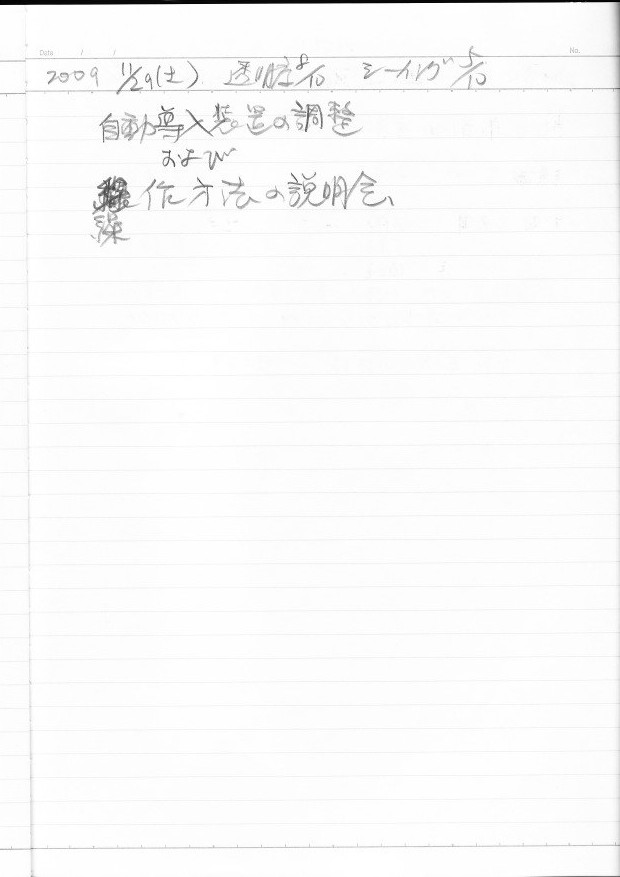 Date / / No.
2009 11/29(土) 透明度8/10 シーイング5/10
自動導入装置の調整
および
作方法の説明会、
操